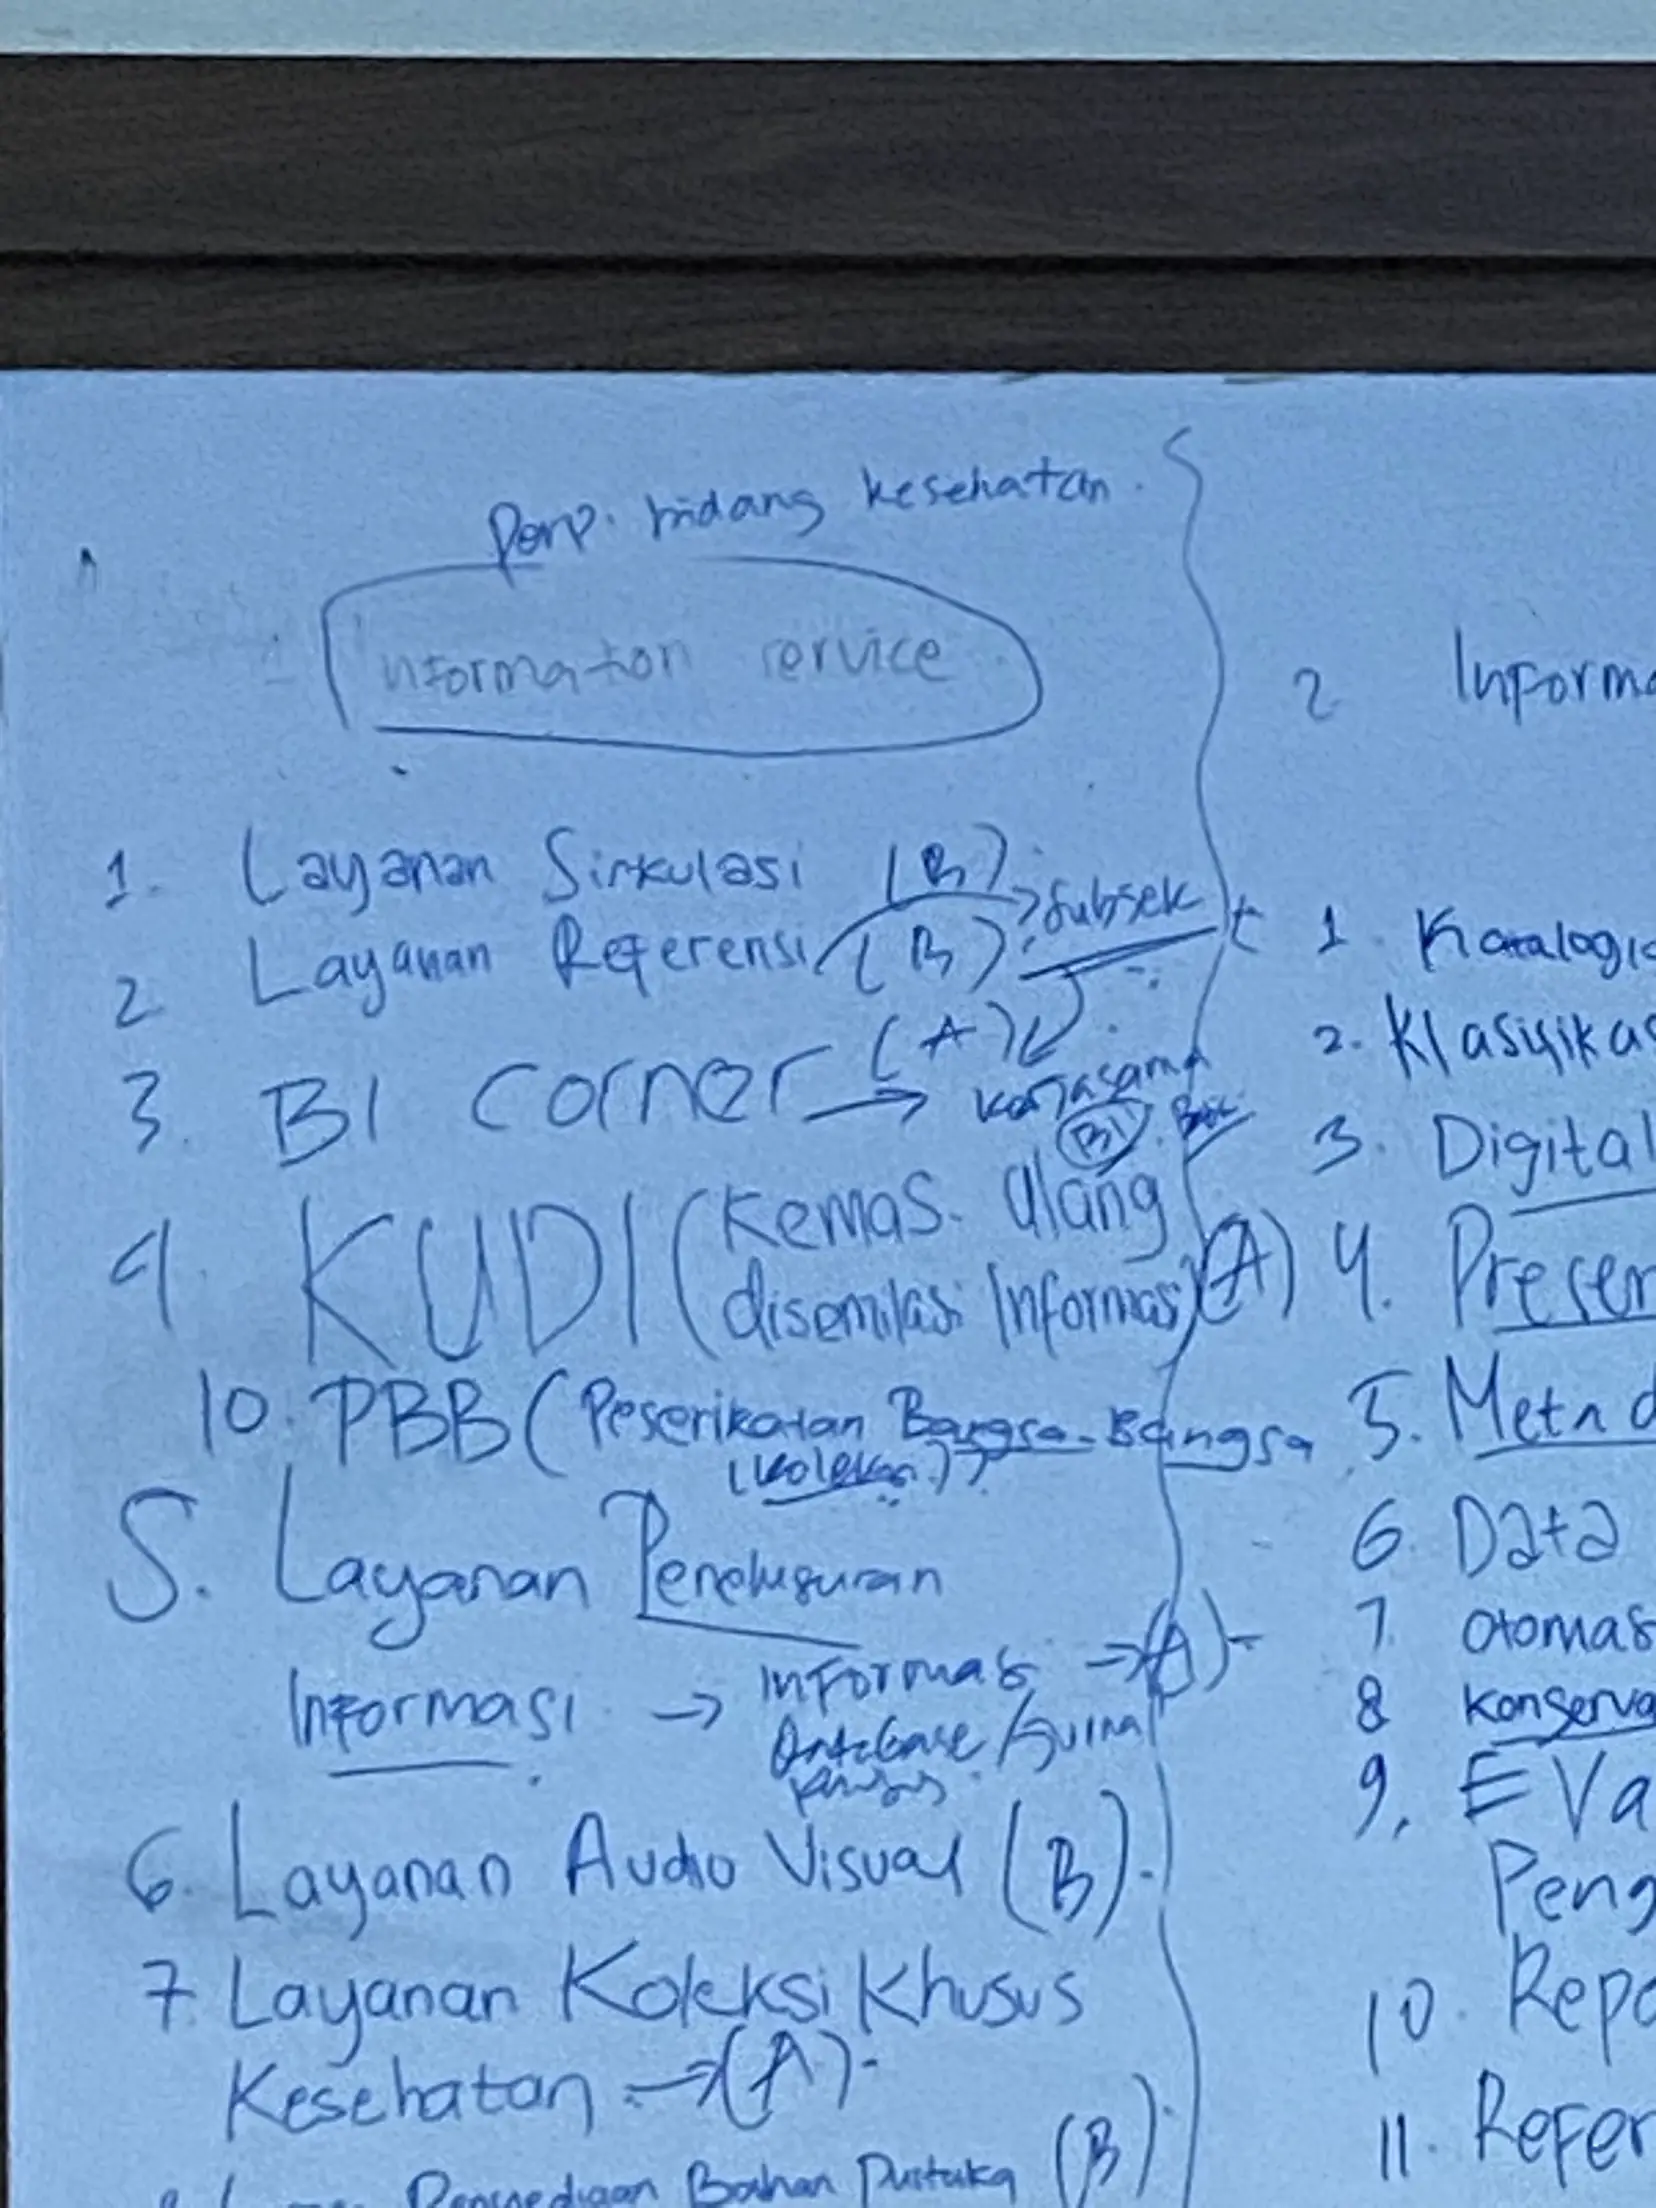 Perp. bidang kesehatan.
Information service
1. Layanan Sirkulasi (B)
2 Layanan Referensi (B) → Subjek
3. BI corner (A) → Kerjasama
BI
4. KUDI (Kemas. Ulang
disemilasi Informasi) (A)
10. PBB (Peserikatan Bangsa-Bangsa
(koleksi))
5. Layanan Penelusuran
Informasi → Informasi → (A)
Database / Jurnal
6. Layanan Audio Visual (B).
7. Layanan Koleksi Khusus
Kesehatan → (A).
Penyediaan Bahan Pustaka (B)
2 Informa
1. Katalogi
2. Klasifikas
3. Digital
4. Preser
5. Metad
6. Data
7. otomas
8 Konserva
9. Eva
Peng
10. Repo
11. Refer